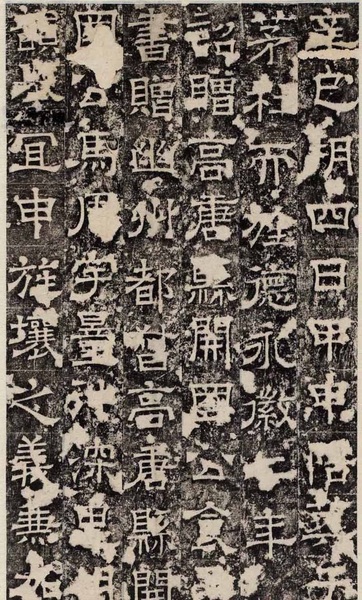 辛巳朔四日甲申陪葬
茅社而旌德永徽二年
詔贈高唐縣開國公食
書贈幽州都督高唐縣開
國公馬周宇量深
宜申旌壤之義兼加